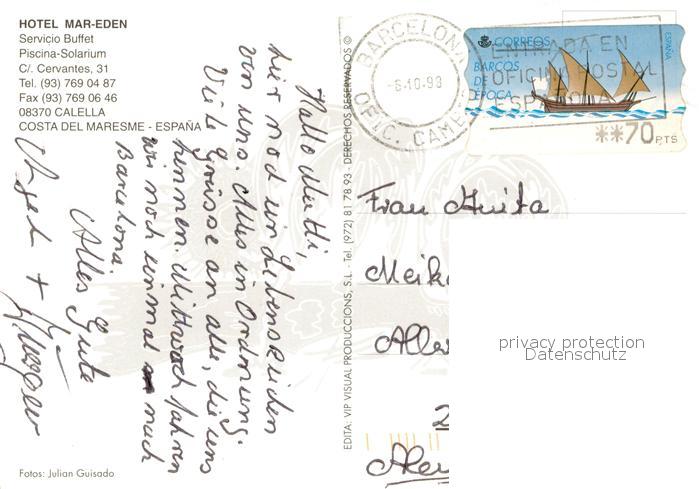 HOTEL MAR-EDEN
Servicio Buffet
Piscina-Solarium
C/. Cervantes, 31
Tel. (93) 769 04 87
Fax (93) 769 06 46
08370 CALELLA
COSTA DEL MARESME - ESPAÑA
Hallo Mutti,
hier noch ein Lebenszeichen
von uns. Alles in Ordnung.
Viele Grüsse an alle, die uns
kennen. Mittwoch fahren
wir noch einmal nach
Barcelona.
Alles Gute
Fotos: Julian Guisado
EDITA: VIP VISUAL PRODUCCIONS, S.L. - Tel. (972) 81 78 93 - DERECHOS RESERVADOS ©
BARCELONA
-6-10-93
OFIC. CAMB
ENTRADA EN
OFICINA POSTAL
ESPAÑOLA
CORREOS
BARCOS
DE
EPOCA
ESPAÑA
**70 PTS
Frau Anita
Meik
Alle
2
privacy protection
Datenschutz